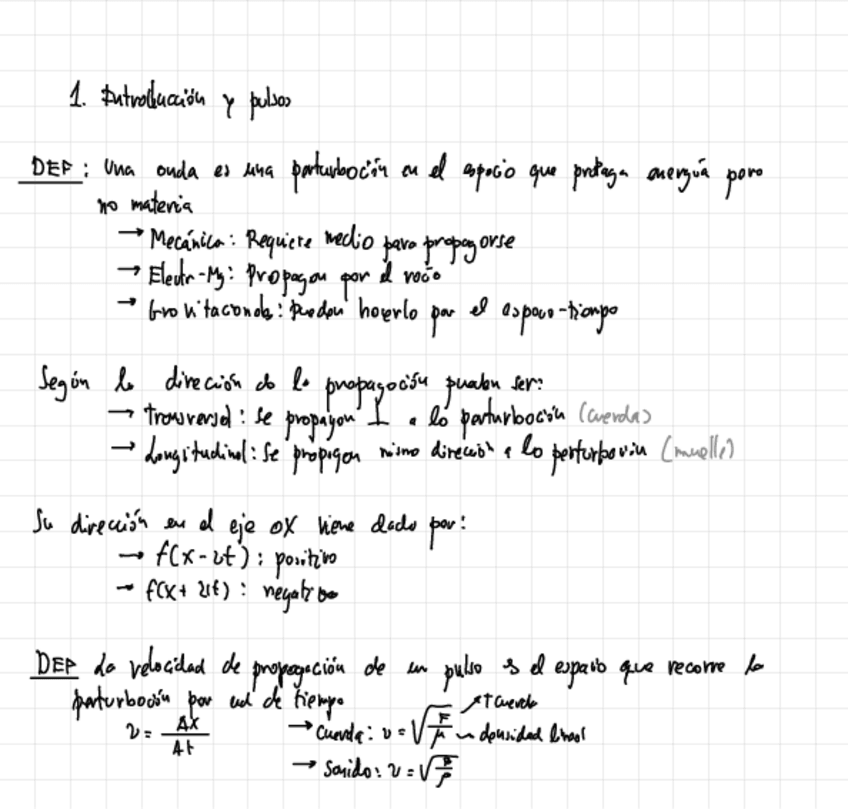 1. Introducción y pulsos
DEF: Una onda es una perturbación en el espacio que propaga energía pero
no materia
→ Mecánica: Requiere medio para propagarse
→ Electr-Mg: Propagan por el vacío
→ Gravitacionda: pueden hacerlo por el espacio-tiempo
Según la dirección de la propagación pueden ser:
→ transversal: se propagan ⊥ a la perturbación (cuerda)
→ Longitudinal: Se propagan misma dirección a la perturbación (muelle)
Su dirección en el eje OX viene dado por:
→ f(x-vt): positivo
→ f(x+vt): negativo
DEF La velocidad de propagación de un pulso es el espacio que recorre la
perturbación por ud de tiempo
v = Δx/Δt → Cuerda: v = √(F/μ) ↗ T cuerda ~ densidad lineal
→ Sonido: v = √(B/ρ)